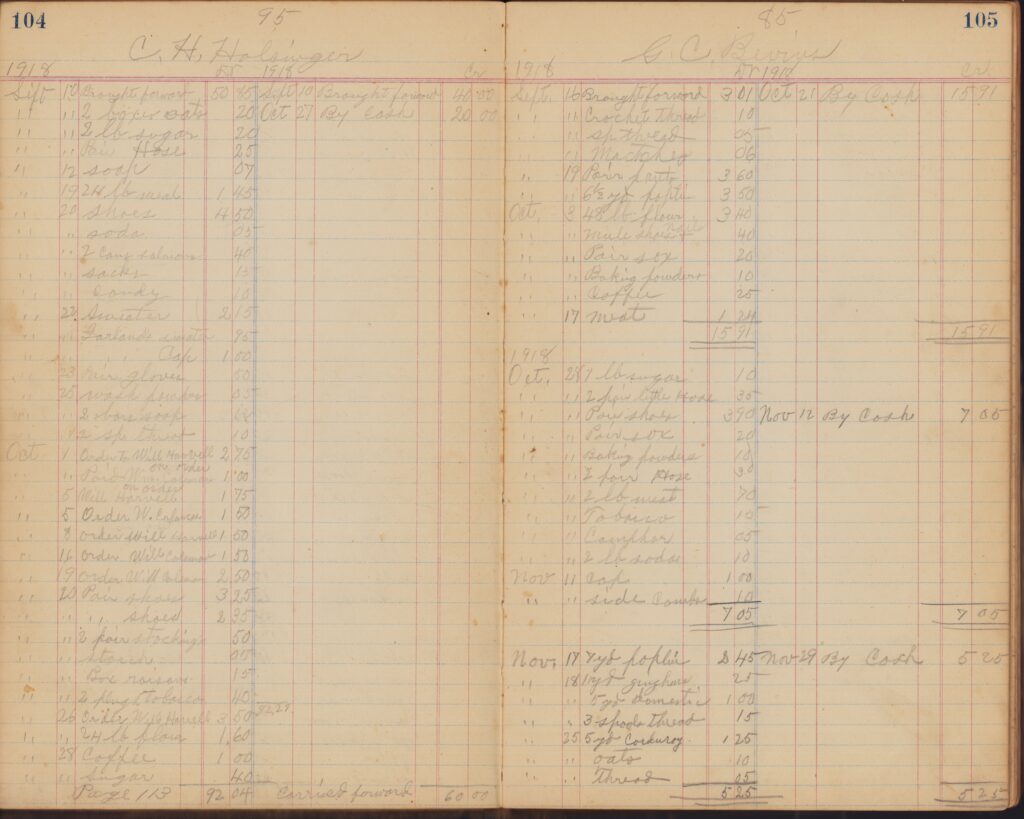 104
95
C. H. Holsinger
1918 Dr 1918 Cr
Sept 10 Brought forward 50 85 Sept 10 Brought forward 40 00
" " 2 boxes oats 20 Oct 27 By Cash 20 00
" " 2 lb sugar 20
" " Pair Hose 25
" 12 soap 07
" 19 24 lb meal 1 45
" 20 shoes 4 50
" " soda 05
" " 2 Cans salmon 40
" " sacks 15
" " Candy 10
" 22 Sweater 2 15
" " Garland's sweater 95
" " " Cap 1 00
" 23 Pair gloves 50
" 25 wash powder 05
" " 2 bars soap
" " 2 sp thread 10
Oct 1 Order to Will Harrell 2 75
" " Paid Wm Coleman on order 1 00
" 5 Will Harrell on order 1 75
" 5 Order W. Coleman 1 50
" 8 order Will Harrell 1 50
" 16 order Will Coleman 1 50
" 19 order Will Coleman 2 50
" 20 Pair shoes 3 25
" " " shoes 2 35
" " 2 pair stockings 50
" " starch 05
" " Box raisins 15
" " 2 plugs tobacco 40
" 26 Order Will Harrell 3 50
" " 24 lb flour 1 60
" 28 Coffee 1 00
" " sugar 40
Page 113 92 04 Carried forward 60 00
105
85
G. C. Bivins
1918 Dr 1918 Cr
Sept. 16 Brought forward 3 01 Oct 21 By Cash 15 91
" " Crochet thread 10
" " sp thread 05
" " Matches 06
" 19 Pair pants 3 60
" " 6½ yd poplin 3 50
Oct. 3 48 lb flour 3 40
" " Mule shoes & nails 40
" " Pair sox 20
" " Baking powders 10
" " Coffee 25
" 17 Meat 1 24
15 91 15 91
1918
Oct. 28 1 lb sugar 10
" " 2 pair little Hose 35
" " Pair shoes 3 90 Nov 12 By Cash 7 05
" " Pair sox 20
" " Baking powders 10
" " 2 pair Hose 30
" " 2 lb meat 70
" " Tobacco 15
" " Camphor 05
" " 2 lb soda 10
Nov 11 Cap 1 00
" " side Combs 10
7 05 7 05
Nov. 17 7 yd poplin 2 45 Nov 29 By Cash 5 25
" 18 1 yd gingham 25
" " 5 yd domestic 1 00
" " 3 spools thread 15
" 25 5 yd Corduroy 1 25
" " oats 10
" " thread 05
5 25 5 25